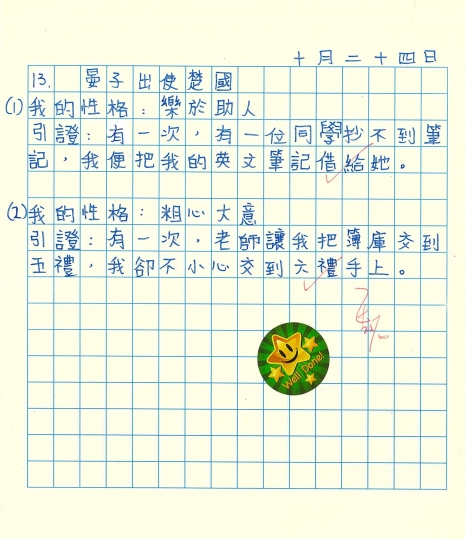 十月二十四日
13. 晏子出使楚國
(1)我的性格：樂於助人
引證：有一次，有一位同學抄不到筆
記，我便把我的英文筆記借給她。
(2)我的性格：粗心大意
引證：有一次，老師讓我把簿庫交到
五禮，我卻不小心交到六禮手上。
Well Done!